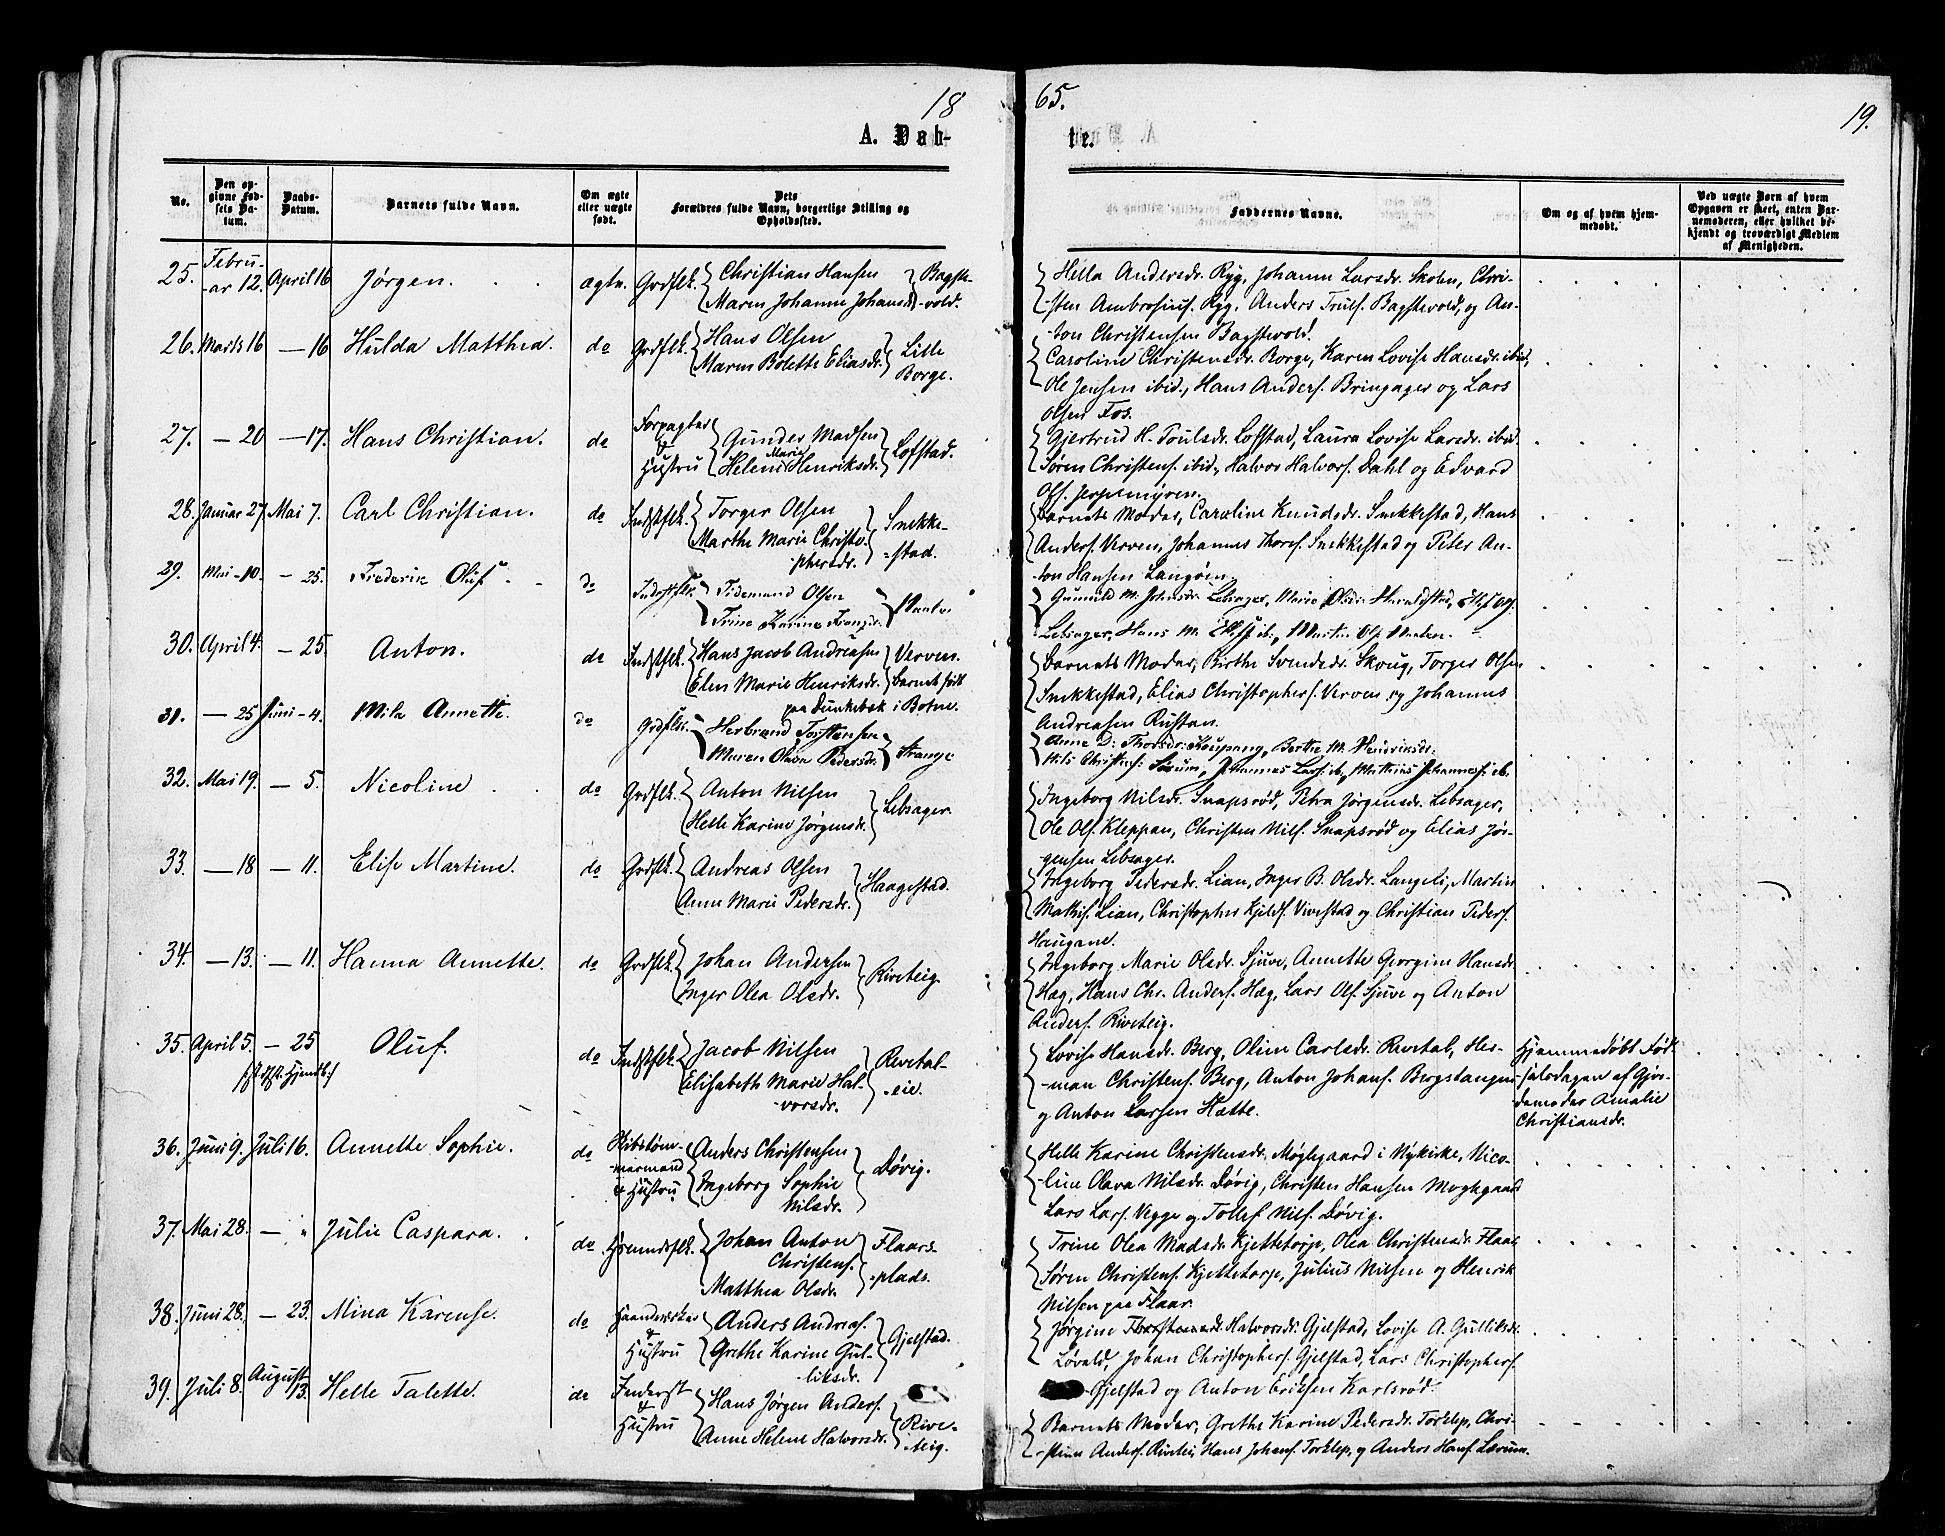 18
65.
19.
A. Døb-
te.
No.
Den op-
givne Fød-
sels Da-
tum.
Daabs-
Datum.
Barnets fulde Navn.
Om ægte
eller uægte
født.
Dets
Forældres fulde Navn, borgerlige Stilling og
Opholdssted.
Faddernes Navne.
Om og af hvem hjem-
medøbt.
Ved uægte Børn af hvem
Opgaven er skeet, enten Bar-
nemoderen, eller hvilket be-
kjendt og troværdigt Medlem
af Menigheden.
25. Febru-
ar 12. April 16 Jørgen. ægte. Grdflk. Christian Hansen
Maren Johanne Johansd. Bagste-
vold.
Helle Andersdr. Ryg, Johanne Larsdr. Skolen, Chri-
-sten Ambrosiusf. Ryg, Anders Trulf. Bagstevold, og An-
-ton Christensen Bagstevold.
26. Marts 16 — 16 Hulda Matthea. do Grdflk. Hans Olsen
Maren Bolette Eliasdr. Lille
Borge.
Caroline Christensdr. Borge, Karen Lovise Hansdr. ibid,
Ole Jensen ibid., Hans Andersf. Bringager og Lars
Olsen Fos.
27. — 20 — 17. Hans Christian. do Forpagter
&
Hustru Gunder Madsen
Helene Marie Henriksdr. Lofstad.
Gjertrud H. Poulsdr. Lofstad, Laura Lovise Larsdr. ibid.
Søren Christensf. ibid., Halvor Halvorsf. Dahl og Edvard
Olf. Jerpemyren.
28. Januar 27. Mai 7. Carl Christian. do Indstflk. Torger Olsen
Marthe Marie Christo-
-phersdr. Snekke-
-stad.
Barnets Moder, Caroline Knudsdr. Snekkestad, Hans
Andersf. Verven, Johannes Thoresf. Snekkestad og Peter An-
-ton Hansen Langøen.
29. Mai - 10. — 25. Frederik Oluf. do Indstflk. Tidemand Olsen
Trine Karine Franzdr.
30. April 4. — 25. Anton. do Indstflk. Hans Jacob Andreasen
Elen Marie Henriksdr. Verven.
Barnet født
paa Dunkebæk i Botne.
Barnets Moder, Birthe Svendsdr. Skoug, Torger Olsen
Snekkestad, Elias Christophersf. Verven, og Johannes
Andreasen Rustan.
31. — 25 Juni - 4. Mila Annette. do Grdflk. Herbrand Torstensen
Maren Olava Pedersdr. Strange
Anne D: Thorsdr: Kaupang, Berthe M. Hendriksdr:
Nils Christiesf: Sørum, Johannes Larsf: ib., Mathias Johannesf: ib.
32. Mai 19. — 5. Nicoline do Grdflk. Anton Nilsen
Helle Karine Jørgensdr. Lebsager.
Ingeborg Nilsdr. Snapsrød, Petra Jørgensdr. Lebsager,
Ole Olf. Kleppan, Christen Nilf. Snapsrød og Elias Jør-
-gensen Lebsager.
33. — 18 — 11. Elise Martine. do Grdflk. Andreas Olsen
Anne Marie Pedersdr. Haagestad.
Ingeborg Pedersdr. Lian, Inger B. Olsdr. Langeli, Martin
Mathisf. Lian, Christopher Kjeldf. Vivestad og Christian Pedersf.
Haugane.
34. — 13. — 11. Hanna Annette. do Grdflk. Johan Andersen
Inger Olea Olsdr. Riveteig.
Ingeborg Marie Olsdr. Sjuve, Annette Georgine Hansdr.
Hæg, Hans Chr. Andersf. Hæg, Lars Olf. Sjuve og Anton
Andersf. Riveteig.
35. April 5. — 25 Oluf. do Indstflk. Jacob Nilsen
Elisabeth Marie Hal-
-vorsdr. Rivetal-
-eie.
Lovise Hansdr. Berg, Oline Carlsdr. Rivetal, Her-
-man Christensf. Berg, Anton Johansf. Bergstangen
og Anton Larsen Hætte.
Hjemmedøbt Fød-
-selsdagen af Gjor-
demoder Amalie
Christiansdr.
36. Juni 9. Juli 16. Annette Sophie. do Skibstøm-
mermand
& Hustru Anders Christensen
Ingeborg Sophie
Nilsdr. Døvig.
Helle Karine Christensdr. Møglegaard i Nykirke, Nico-
-line Olava Nilsdr. Døvig, Christen Hansen Møglegaard
Lars Larsf. Vegge og Tollef Nilf. Døvig.
37. Mai 28. — " Julie Caspara. do Strandsflk. Johan Anton
Christensf.
Matthea Olsdr. Flaars-
-plads.
Trine Olea Madsdr. Kjettetorp, Olea Christensdr. Flaar
Søren Christensf. Kjettetorp, Julius Nilsen og Henrik
Nilsen paa Flaar.
38. Juni 28. — 23. Mina Karense. do Haandverker
&
Hustru Anders Andreasf.
Grethe Karine Gul-
-liksdr. Gjelstad.
Jørgine Halvorsdr. Gjelstad, Lovise A. Gulliksdr.
Løvald, Johan Christophersf. Gjelstad, Lars Christophersf.
Gjelstad og Anton Eriksen Karlsrød.
39. Juli 8. August
13. Helle Talette. do Inderst
&
Hustru Hans Jørgen Andersf.
Anne Helene Halvorsdr. Rive-
-teig.
Barnets Moder, Grethe Karine Pedersdr. Torklep, Chri-
-stian Andersf. Rivetei, Hans Johansf. Torklep, og Anders Hansf. Lærum.